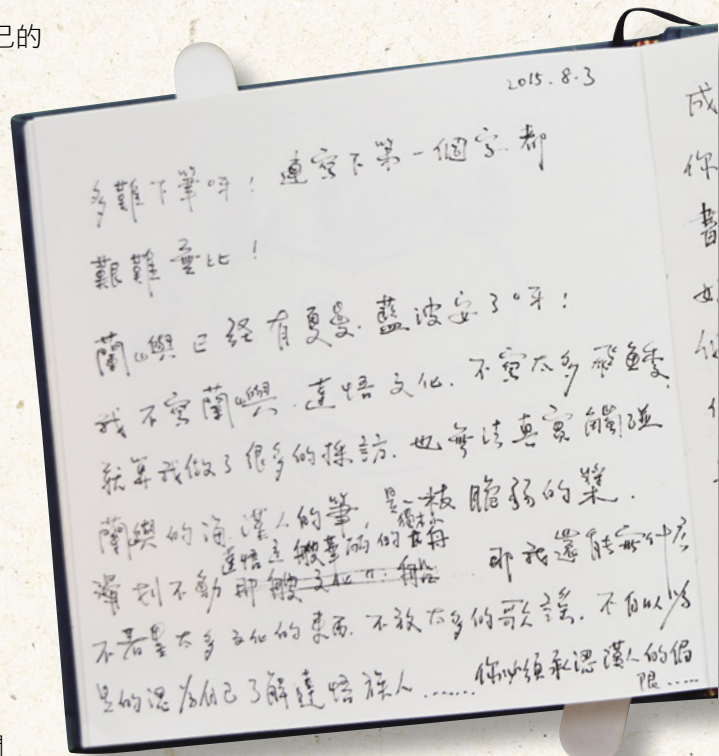 己的
2015.8.3
多難下筆呀！連寫下第一個字都
艱難無比！
蘭嶼已經有夏曼．藍波安了呀！
我不寫蘭嶼．達悟文化．不寫太多飛魚季．
就算我做了很多的採訪．也無法真實觸碰
蘭嶼的海．漢人的筆，是一枝脆弱的槳．
划不動那艘 達悟 華麗的 獨木舟
那我還能寫什麼
不著墨太多文化的東西．不放太多的歌謠．不自以為
是的認為自己了解達悟族人……你必須承認漢人的侷
限……
成
你
書
如